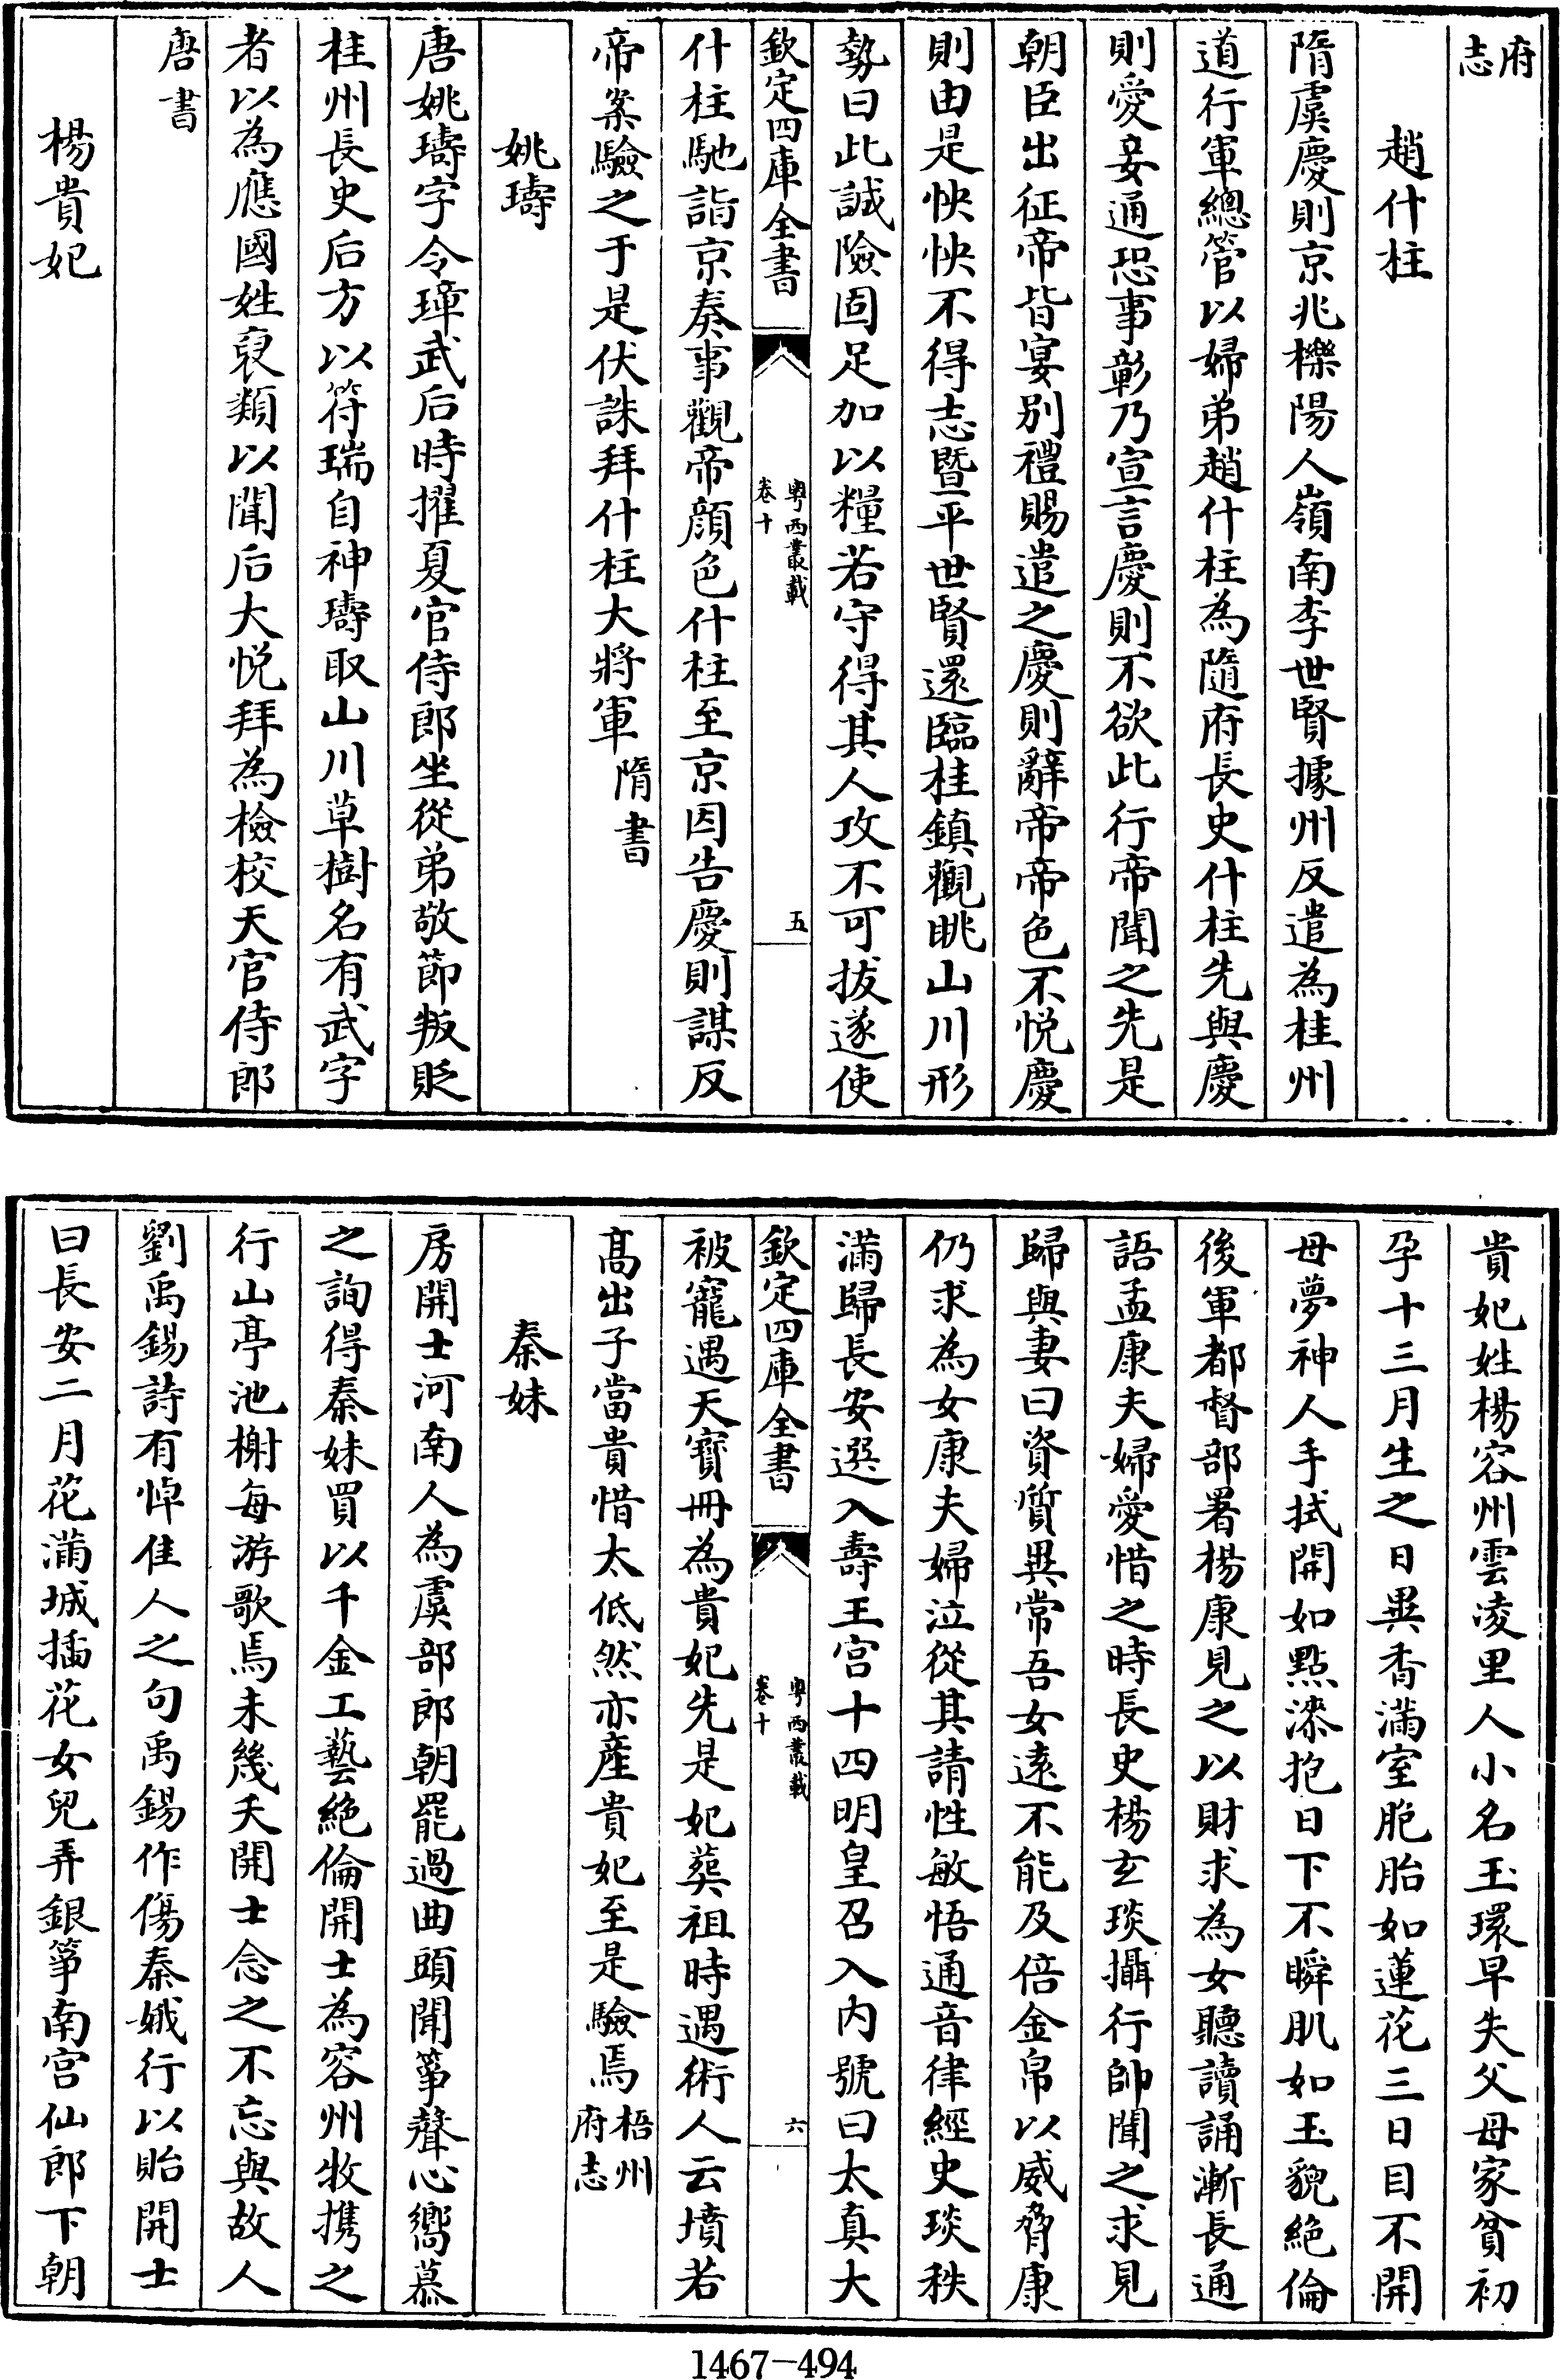 府
志
趙什柱
隋虞慶則京兆櫟陽人嶺南李世賢據州反遣為桂州
道行軍總管以婦弟趙什柱為隨府長史什柱先與慶
則愛妾通恐事彰乃宣言慶則不欲此行帝聞之先是
朝臣出征帝皆宴別禮賜遣之慶則辭帝帝色不悅慶
則由是怏怏不得志暨平世賢還臨桂鎮觀眺山川形
勢曰此誠險固足加以糧若守得其人攻不可拔遂使
欽定四庫全書
粵西叢載
卷十
五
什柱馳詣京奏事觀帝顔色什柱至京因告慶則謀反
帝案驗之于是伏誅拜什柱大將軍隋書
姚璹
唐姚璹字令璋武后時擢夏官侍郎坐從弟敬節叛貶
桂州長史后方以符瑞自神璹取山川草樹名有武字
者以為應國姓裒類以聞后大悅拜為檢校天官侍郎
唐書
楊貴妃
貴妃姓楊容州雲凌里人小名玉環早失父母家貧初
孕十三月生之日異香滿室胞胎如蓮花三日目不開
母夢神人手拭開如點漆抱日下不瞬肌如玉貌絶倫
後軍都督部署楊康見之以財求為女聽讀誦漸長通
語孟康夫婦愛惜之時長史楊玄琰攝行帥聞之求見
歸與妻曰資質異常吾女遠不能及倍金帛以威脅康
仍求為女康夫婦泣從其請性敏悟通音律經史琰秩
滿歸長安選入壽王宫十四明皇召入内號曰太真大
欽定四庫全書
粵西叢載
卷十
六
被寵遇天寶冊為貴妃先是妃葬祖時遇術人云墳若
髙出子當貴惜太低然亦産貴妃至是驗焉梧州
府志
秦妹
房開士河南人為虞部郎朝罷過曲頭聞箏聲心嚮慕
之詢得秦妹買以千金工藝絶倫開士為容州牧携之
行山亭池榭每游歌焉未幾夭開士念之不忘與故人
劉禹錫詩有悼佳人之句禹錫作傷秦娥行以貽開士
曰長安二月花滿城插花女兒弄銀箏南宫仙郎下朝
1467-494